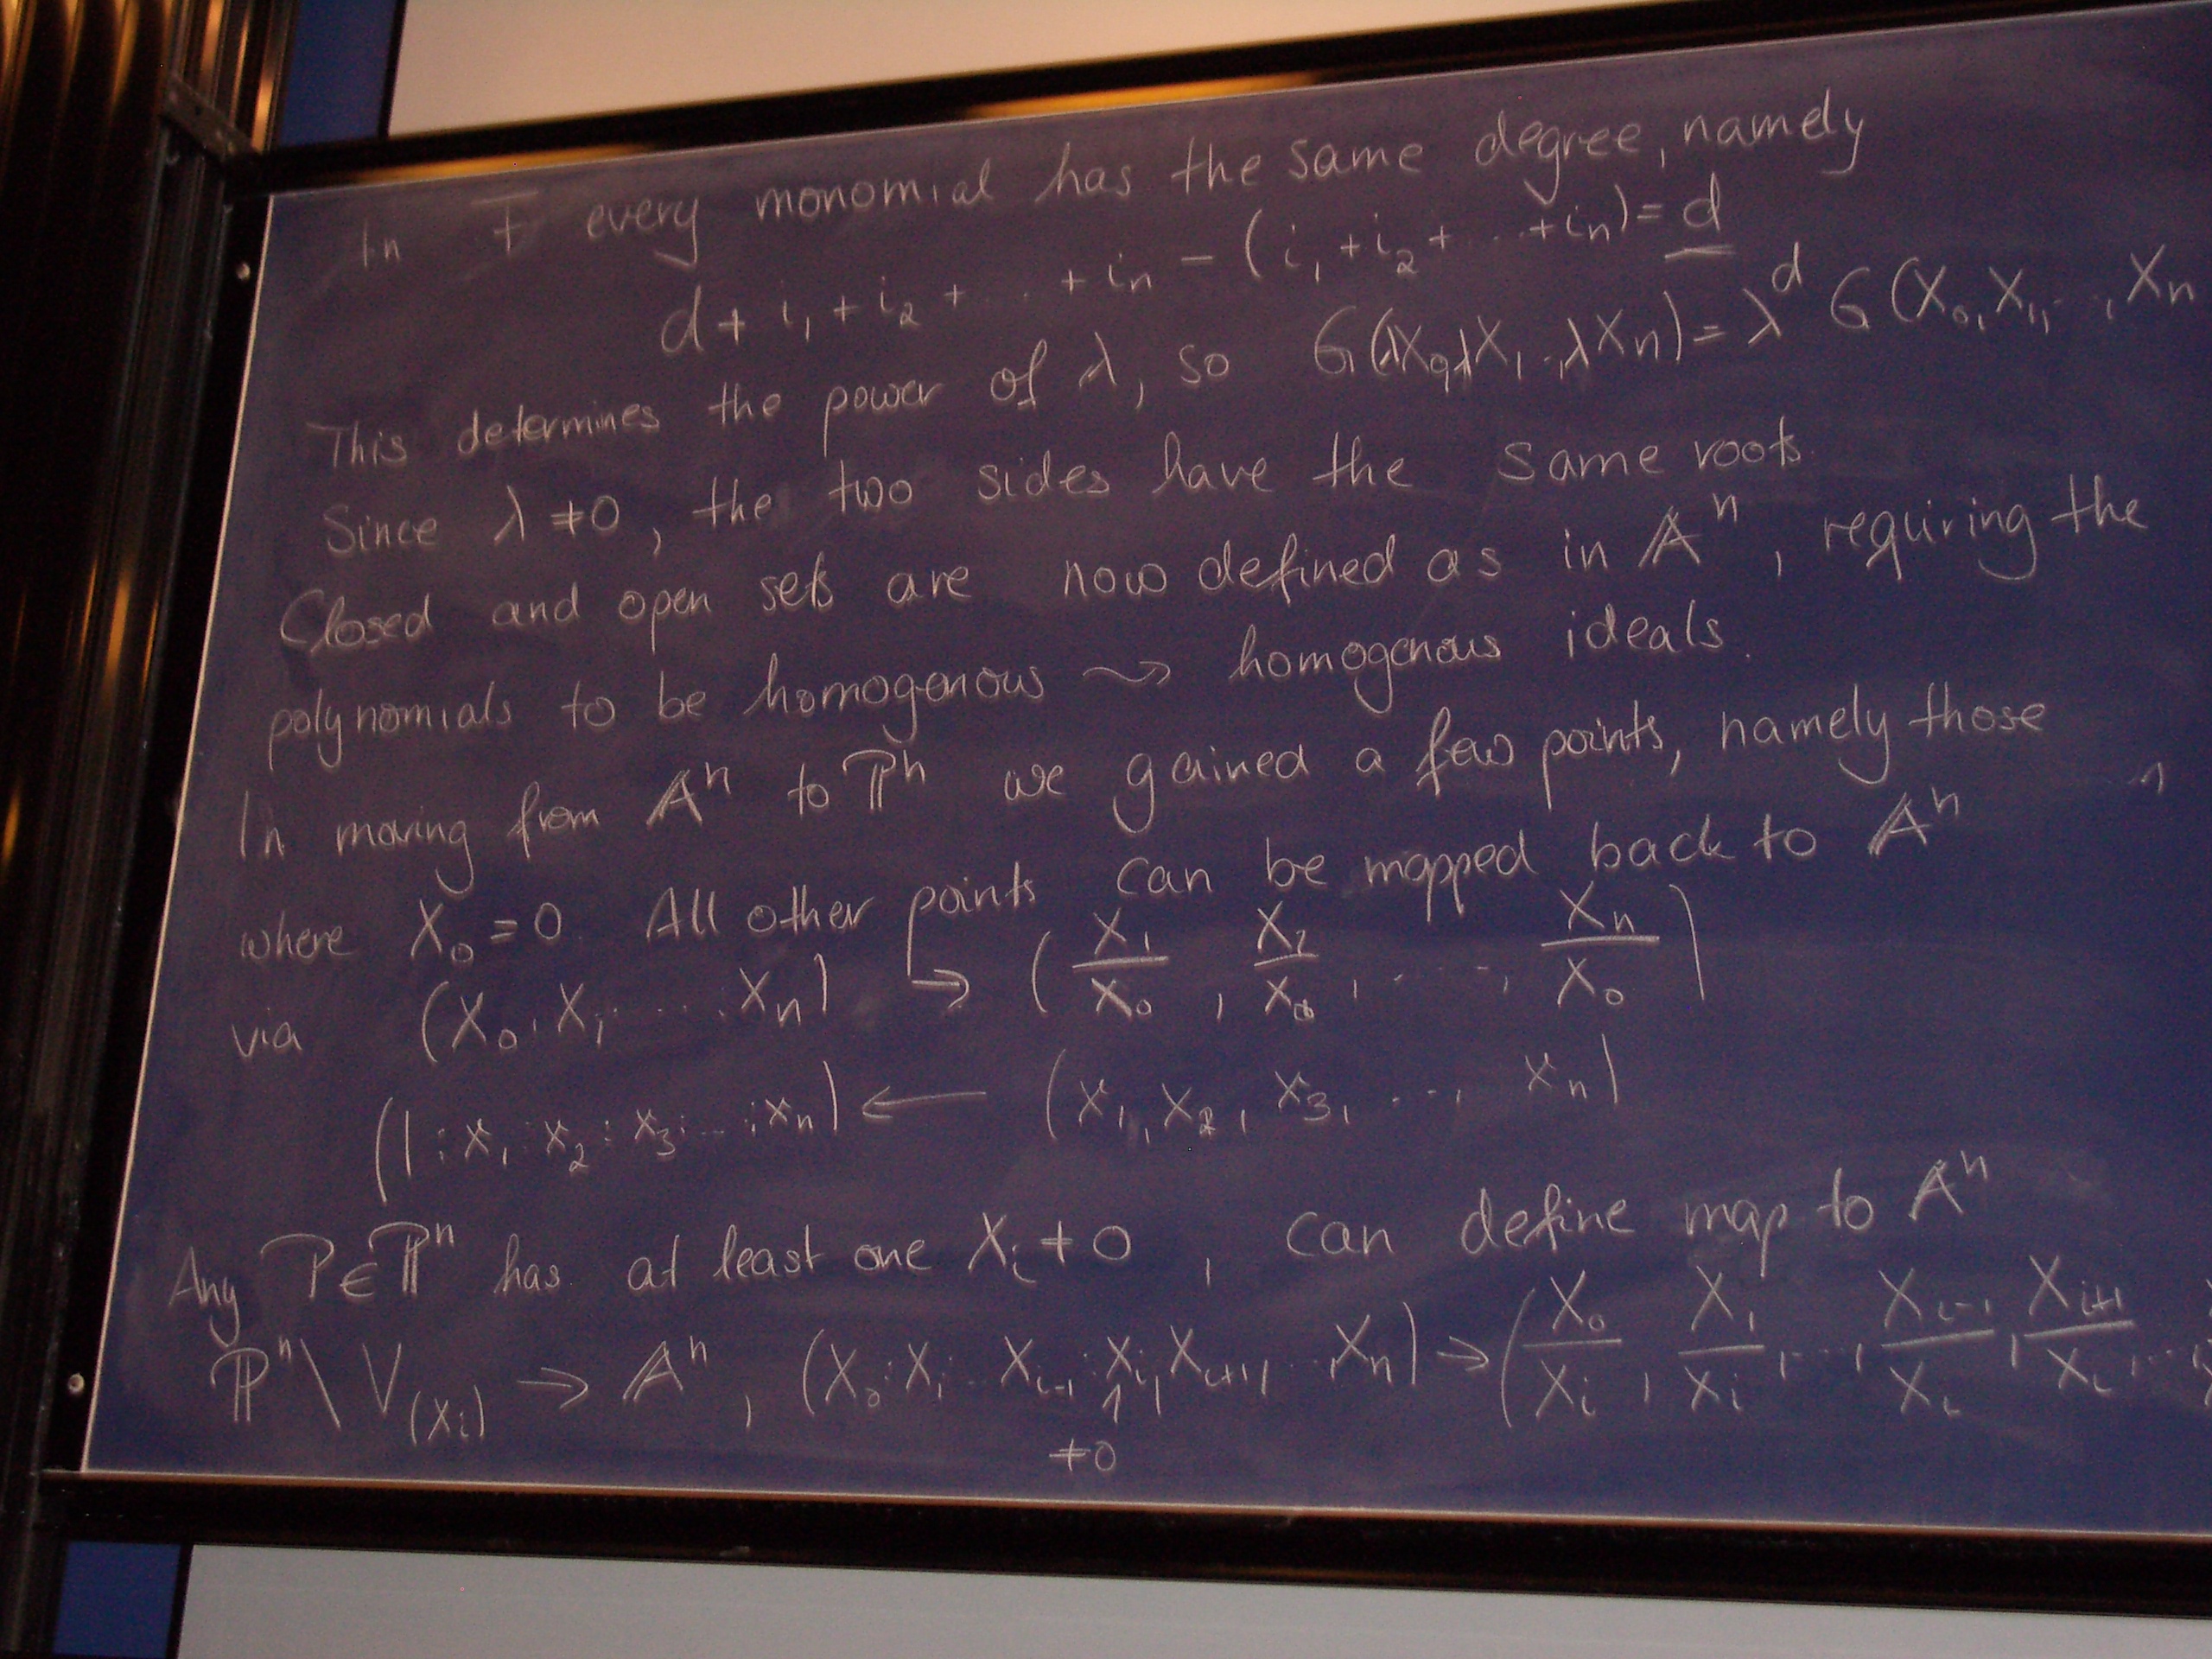 In F every monomial has the same degree, namely
d + i₁ + i₂ + ... + iₙ - (i₁ + i₂ + ... + iₙ) = d
This determines the power of λ, so G(λX₀,λX₁..,λXₙ) = λᵈ G(X₀,X₁,..,Xₙ
Since λ ≠ 0, the two sides have the same roots.
Closed and open sets are now defined as in 𝔸ⁿ, requiring the
polynomials to be homogenous ⇝ homogenous ideals.
In moving from 𝔸ⁿ to ℙⁿ we gained a few points, namely those
where X₀ = 0. All other points can be mapped back to 𝔸ⁿ
via (X₀:X₁:....:Xₙ) ↦ (X₁/X₀, X₂/X₀, ...., Xₙ/X₀)
(1:x₁:x₂:x₃:...:xₙ) ← (x₁, x₂, x₃, ..., xₙ)
Any P ∈ ℙⁿ has at least one Xᵢ ≠ 0, can define map to 𝔸ⁿ
ℙⁿ \ V(Xᵢ) → 𝔸ⁿ, (X₀:X₁..Xᵢ₋₁:Xᵢ,Xᵢ₊₁,..,Xₙ) → (X₀/Xᵢ, X₁/Xᵢ, ..., Xᵢ₋₁/Xᵢ, Xᵢ₊₁/Xᵢ, ..
≠0